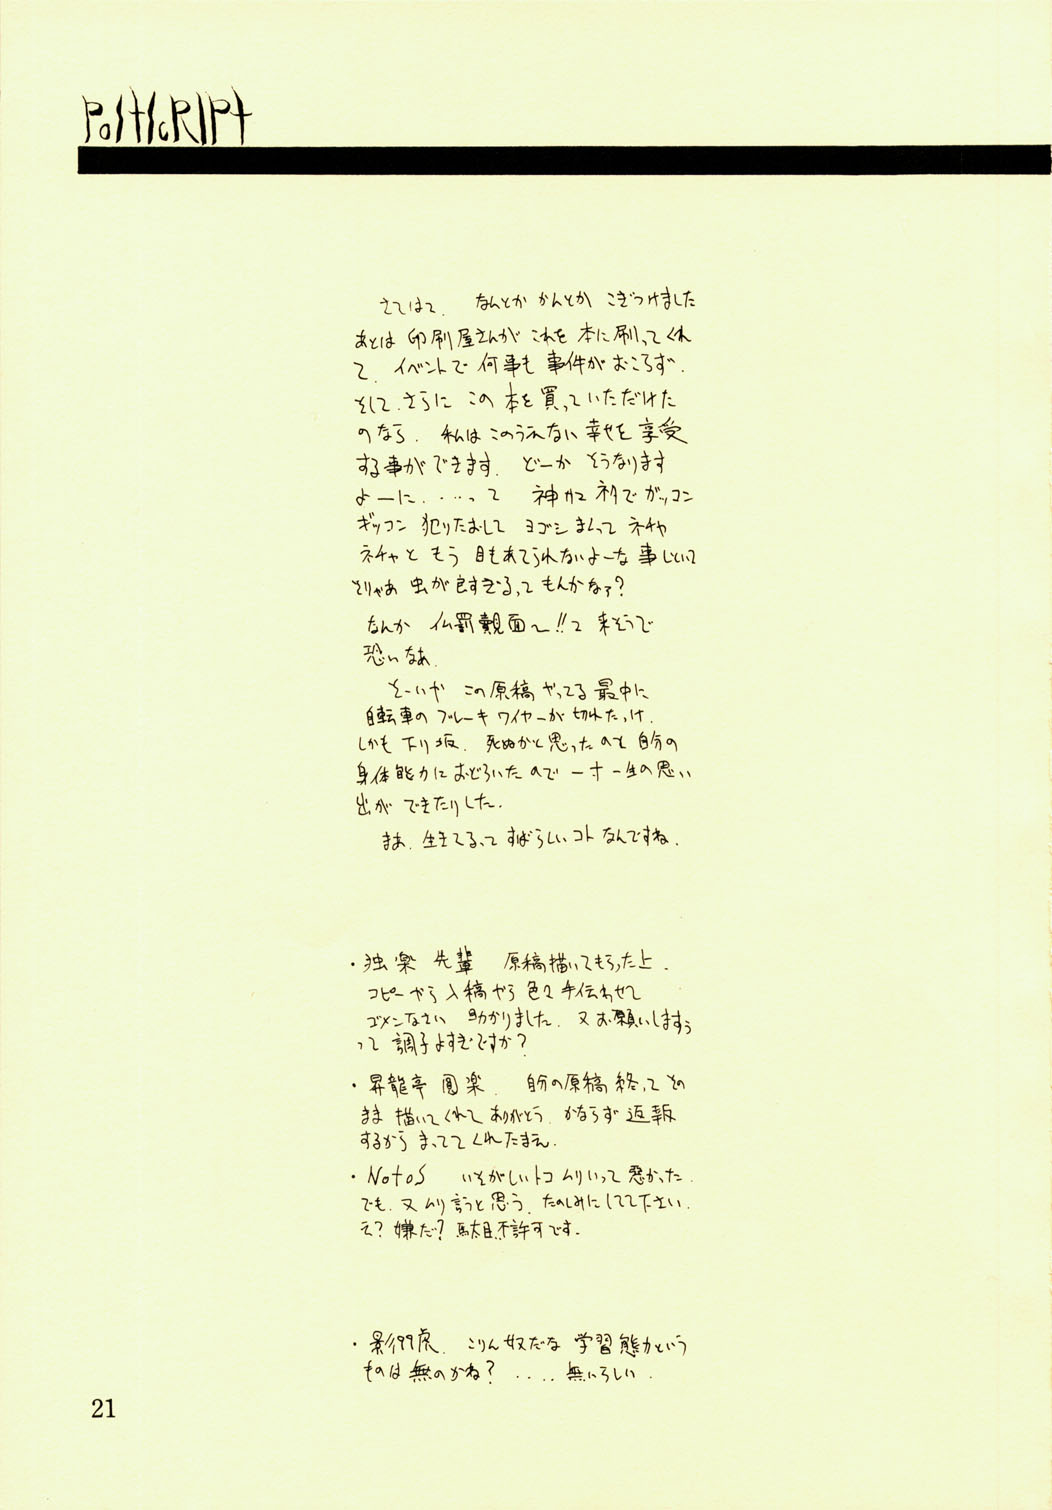 PostScRIPt
さてはて、なんとか かんとか こぎつけました
あとは 印刷屋さんが これを 本に刷ってくれ
て、イベントで 何事も 事件が おころず、
そして、さらに この 本を 買っていただけた
のなら、私は このうえない 幸せを 享受
する事ができます。どーか そうなります
よーに、・・・って 神サマ ネタで ガッコン
ギッコン 犯りたおして ヨゴシまくって ネチャ
ネチャと もう 目もあてられないよーな 事しといて
そりゃあ 虫が良すぎるって もんかなァ?
なんか 仏罰覿面〜!!て 来そうで
恐いなあ。
そーいや この原稿 やってる 最中に
自転車の ブレーキ ワイヤーが 切れたっけ。
しかも 下り坂。死ぬかと思ったのと 自分の
身体能力に おどろいたので 一寸 一生の思い
出が できたりした。
まあ、生きてるって すばらしいコト なんですね。
・独楽 先輩 原稿描いてもらった上、
コピーから 入稿やら 色々 手伝わせて
ゴメンなさい 助かりました。又お願いしますぅ
って 調子よすぎですか?
・昇龍亭 圓楽、自分の原稿 終って その
まま 描いてくれて ありがとう。かならず 返報
するから まっててくれたまえ。
・NotoS いそがしいトコ ムリいって 悪かった。
でも、又 ムリ 言うと思う。たのしみにしてて下さい。
え? 嫌だ? 駄目、不許可です。
・影99虎、こりん奴だな 学習能力という
ものは 無のかね? ‥‥ 無いらしい。
21